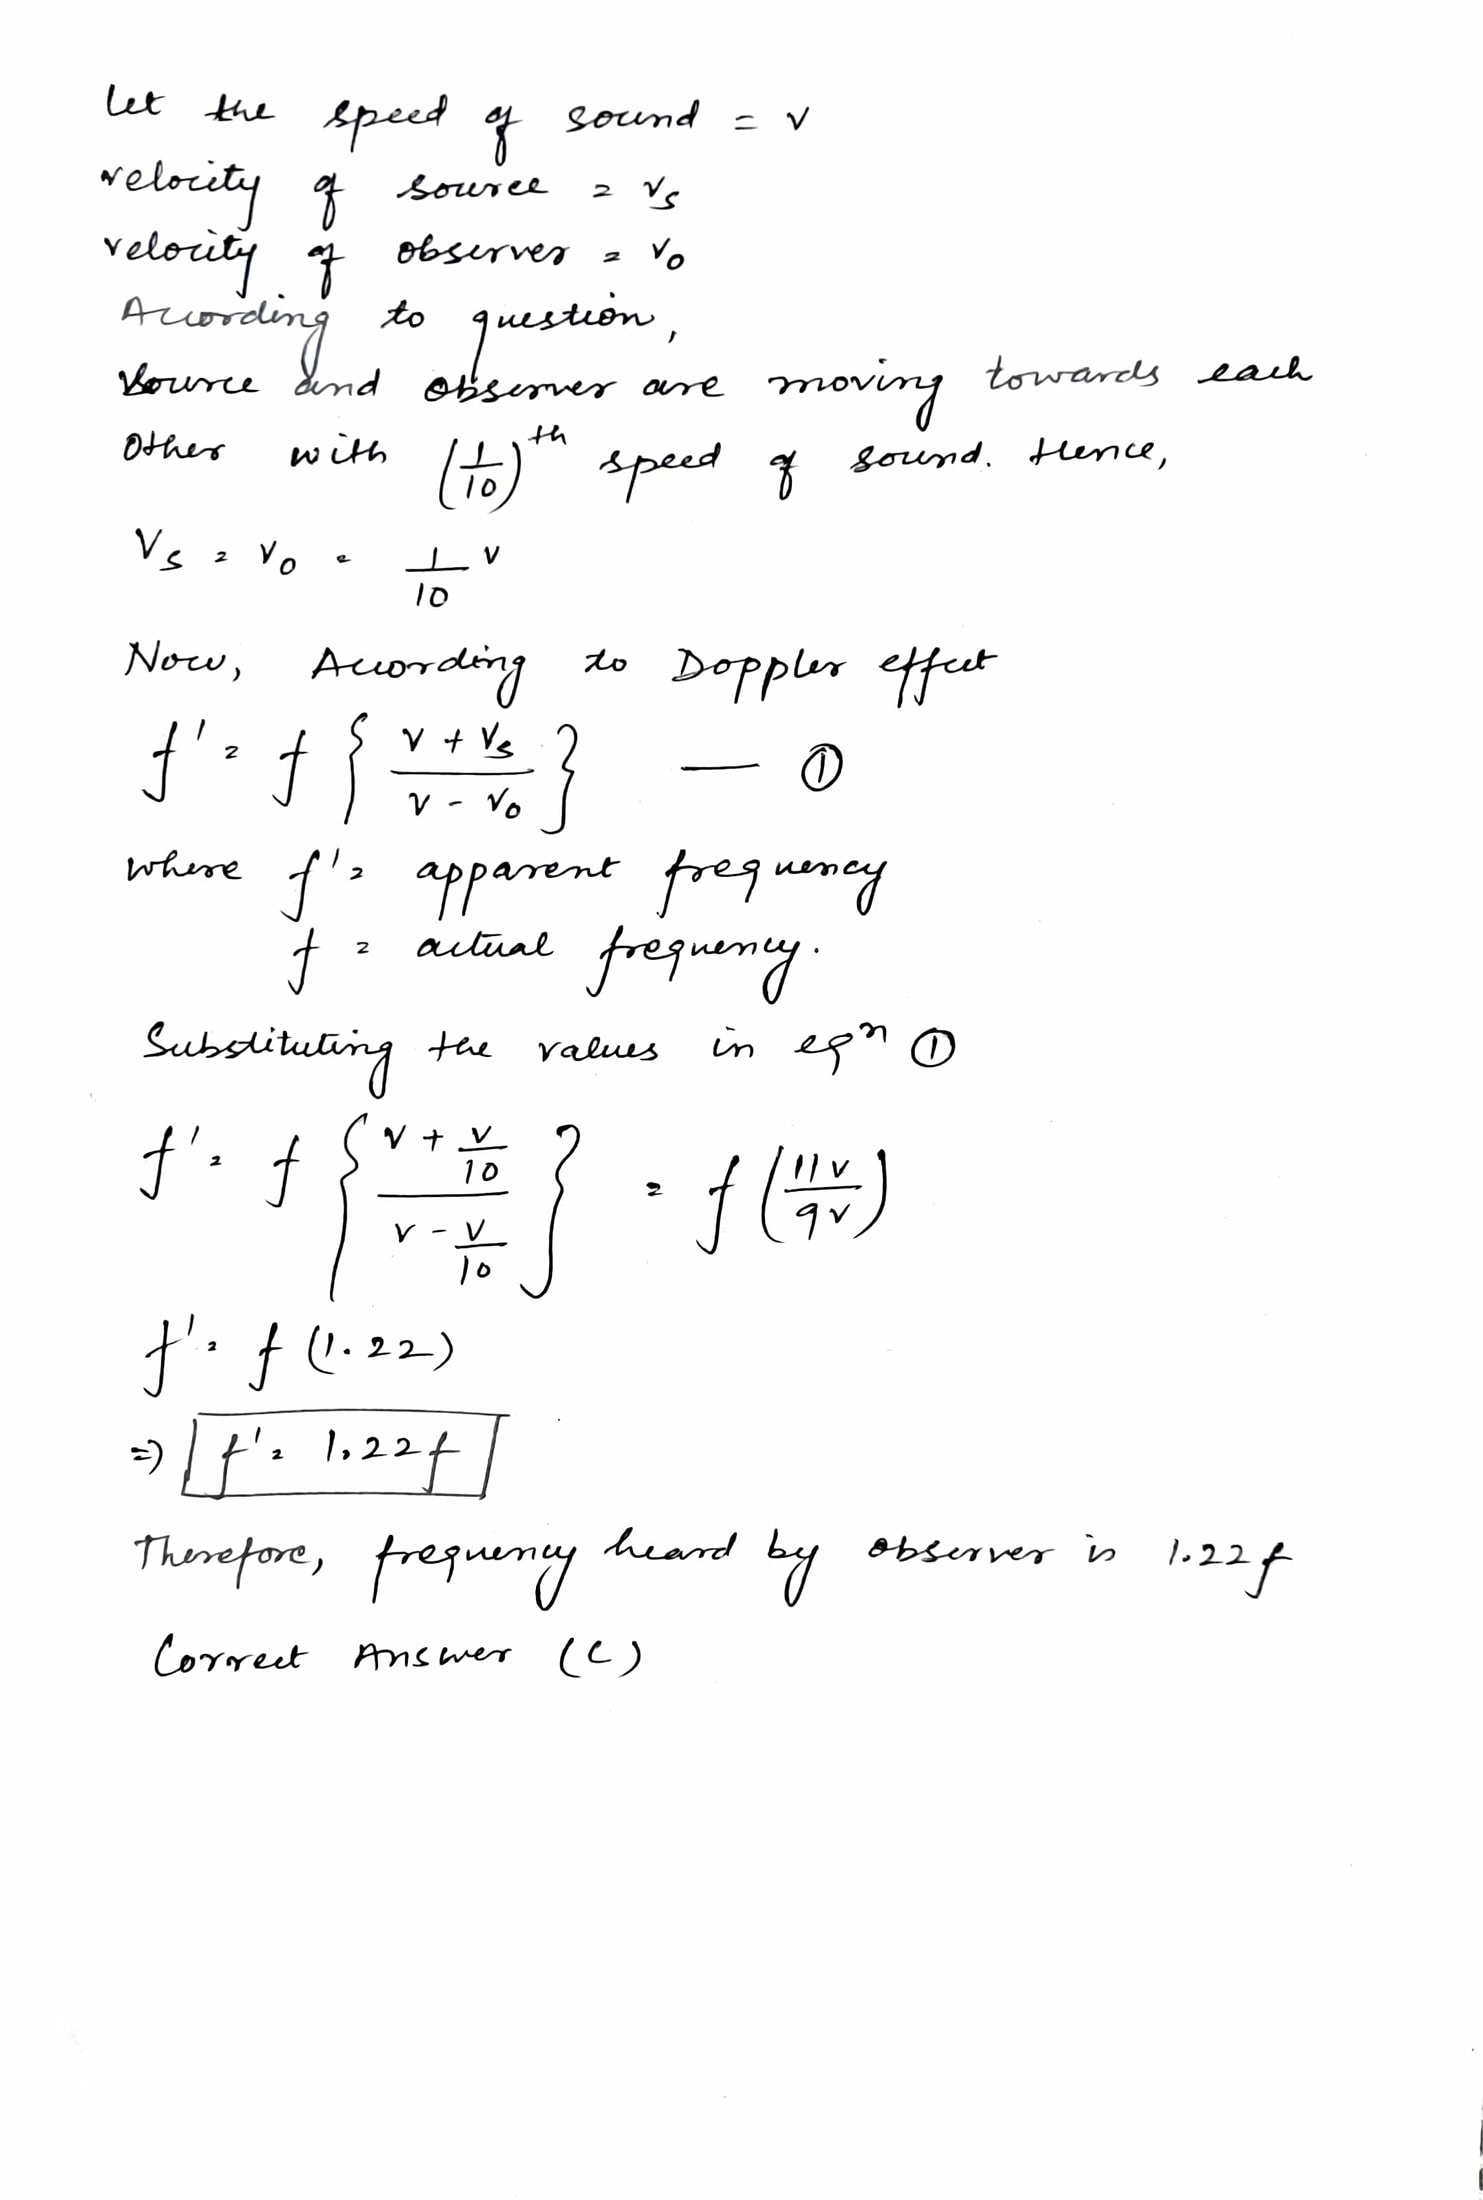 Let the speed of sound = v
velocity of source = vs
velocity of observer = vo
According to question,
Source and observer are moving towards each
other with (1/10)th speed of sound. Hence,
Vs = Vo = 1/10 v
Now, According to Doppler effect
f' = f { v + vs / v - vo } — ①
where f' = apparent frequency
f = actual frequency.
Substituting the values in eqn ①
f' = f { v + v/10 / v - v/10 } = f (11v/9v)
f' = f (1.22)
=> f' = 1.22f
Therefore, frequency heard by observer is 1.22f
Correct Answer (C)